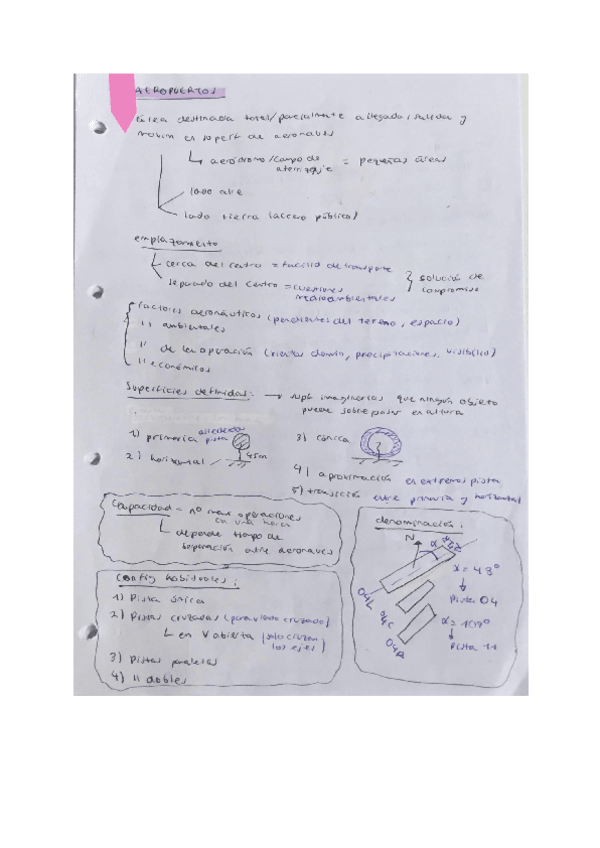 AEROPUERTOS
área destinada total/parcialmente a llegada, salida y
movim en superf de aeronaves
aeródromo/campo de aterrizaje = pequeñas áreas
lado aire
lado tierra (acceso público)
emplazamiento
cerca del centro = facilid de transporte
separado del centro = cuestiones medioambientales
solución de compromiso
factores aeronáuticos (pendientes del terreno, espacio)
" ambientales
" de la operación (vientos domin, precipitaciones, visibilid)
" económicos
Superficies definidas: → supf imaginarias que ningún objeto
puede sobrepasar en altura
1) primaria alrededor pista
2) horizontal 45m
3) cónica
4) aproximación en extremos pista
5) transición entre primaria y horizontal
Capacidad = nº max operaciones
en una hora
depende tiempo de
separación entre aeronaves
Config habituales:
1) Pista única
2) Pistas cruzadas (para viento cruzado)
en V abierta (solo cruzan los ejes)
3) Pistas paralelas
4) " dobles
denominación:
N α 22R
04L
04C
04R
α = 43º
Pista 04
Pista 11